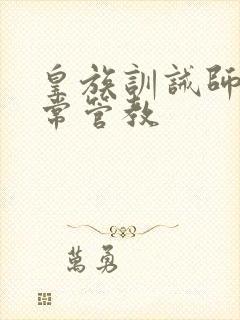 皇族訓誡師
常管教
萬勇